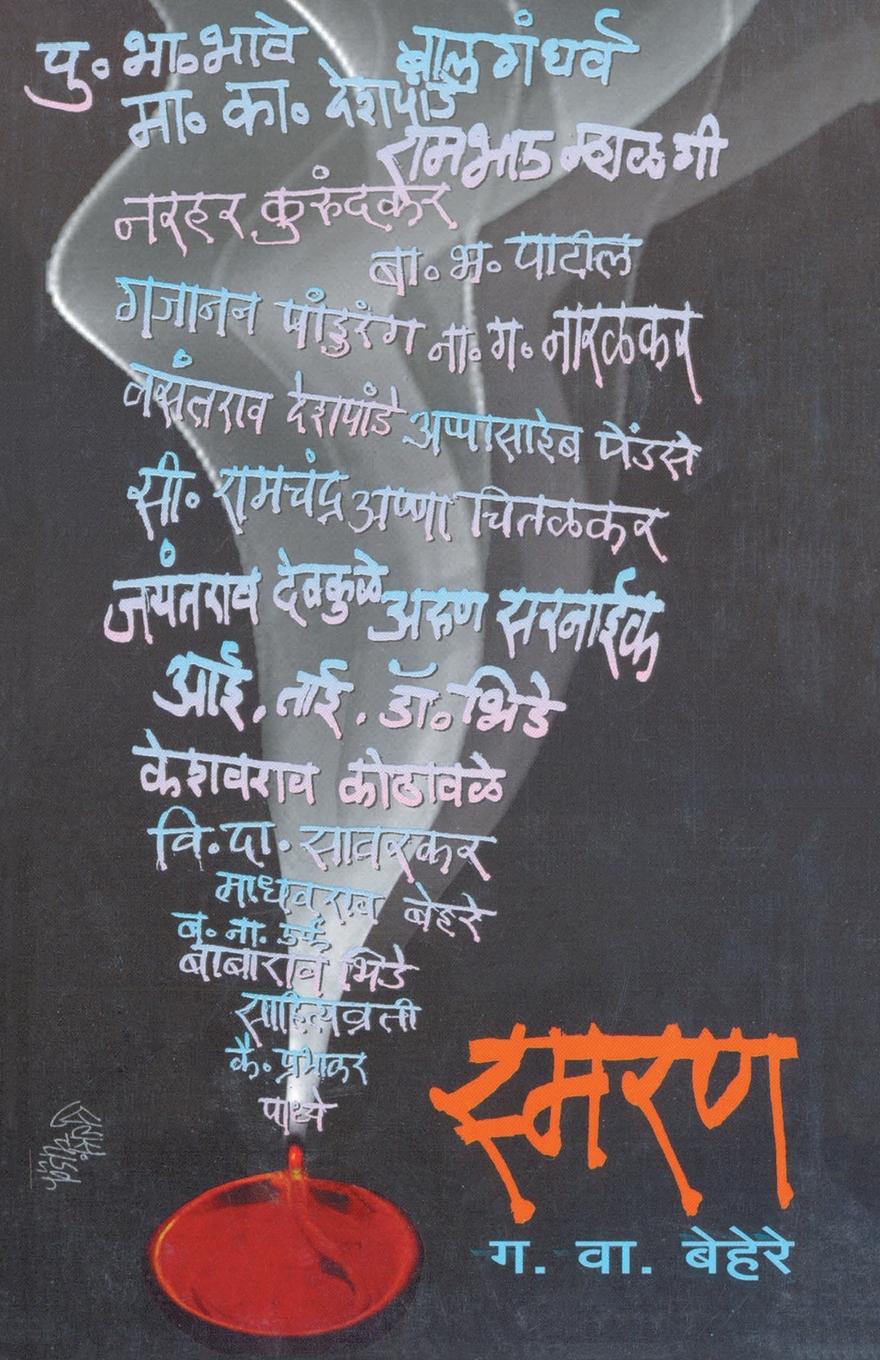 पु. भा. भावे बालगंधर्व
मा. का. देशपांडे
रामभाऊ म्हाळगी
नरहर कुरुंदकर
बा. भ. पाटील
गजानन पांडुरंग ना. ग. नारळकर
वसंतराव देशपांडे अप्पासाहेब पेंडसे
सी. रामचंद्र अण्णा चितळकर
जयंतराव देवकुळे अरुण सरनाईक
आई, ताई. डॉ. भिडे
केशवराव कोठावळे
वि. दा. सावरकर
माधवराव बेहेरे
ब. ना. उर्फ
बाबाराव भिडे
साहित्यव्रती
कै. प्रभाकर
पाध्ये
स्मरण
ग. वा. बेहेरे